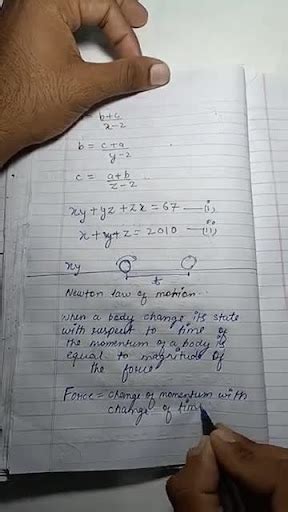 = b+c/x-2
b = c+a/y-2
c = a+b/z-2
xy+yz+zx = 67 — (i)
x+y+z = 2010 — (ii)
xy
t
Newton law of motion...
when a body change its state
with respect to time of
the momentum of a body is
equal to magnitude of
the force
Force = change of momentum with
change of time